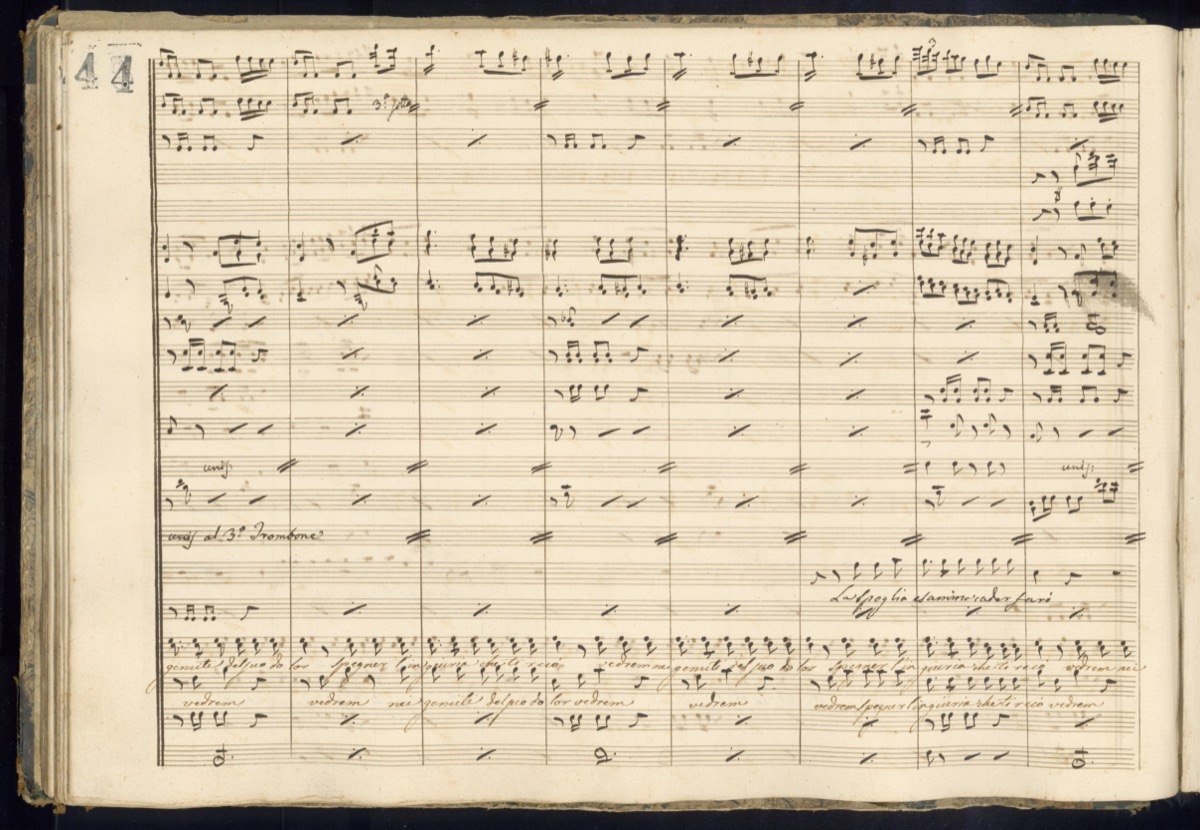 44
3
3ª 8ᵗᵃ
unis:
unis:
unis al 3º Trombone
La spoglia esamine cader farò
gemiti del suo dolor spegner l'ingiuria che ti recò vedrem nei gemiti del suo dolor spegner l'ingiuria che ti recò vedrem nei
vedrem vedrem nei gemiti del suo dolor vedrem vedrem vedrem spegner l'ingiuria che ti recò vedrem